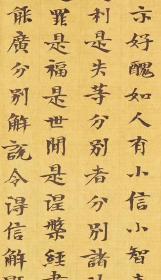 示好醜如人有小信小智
利是失等分別者分別諸
罪是福是世間是涅槃經書
能廣分別解說令得信解